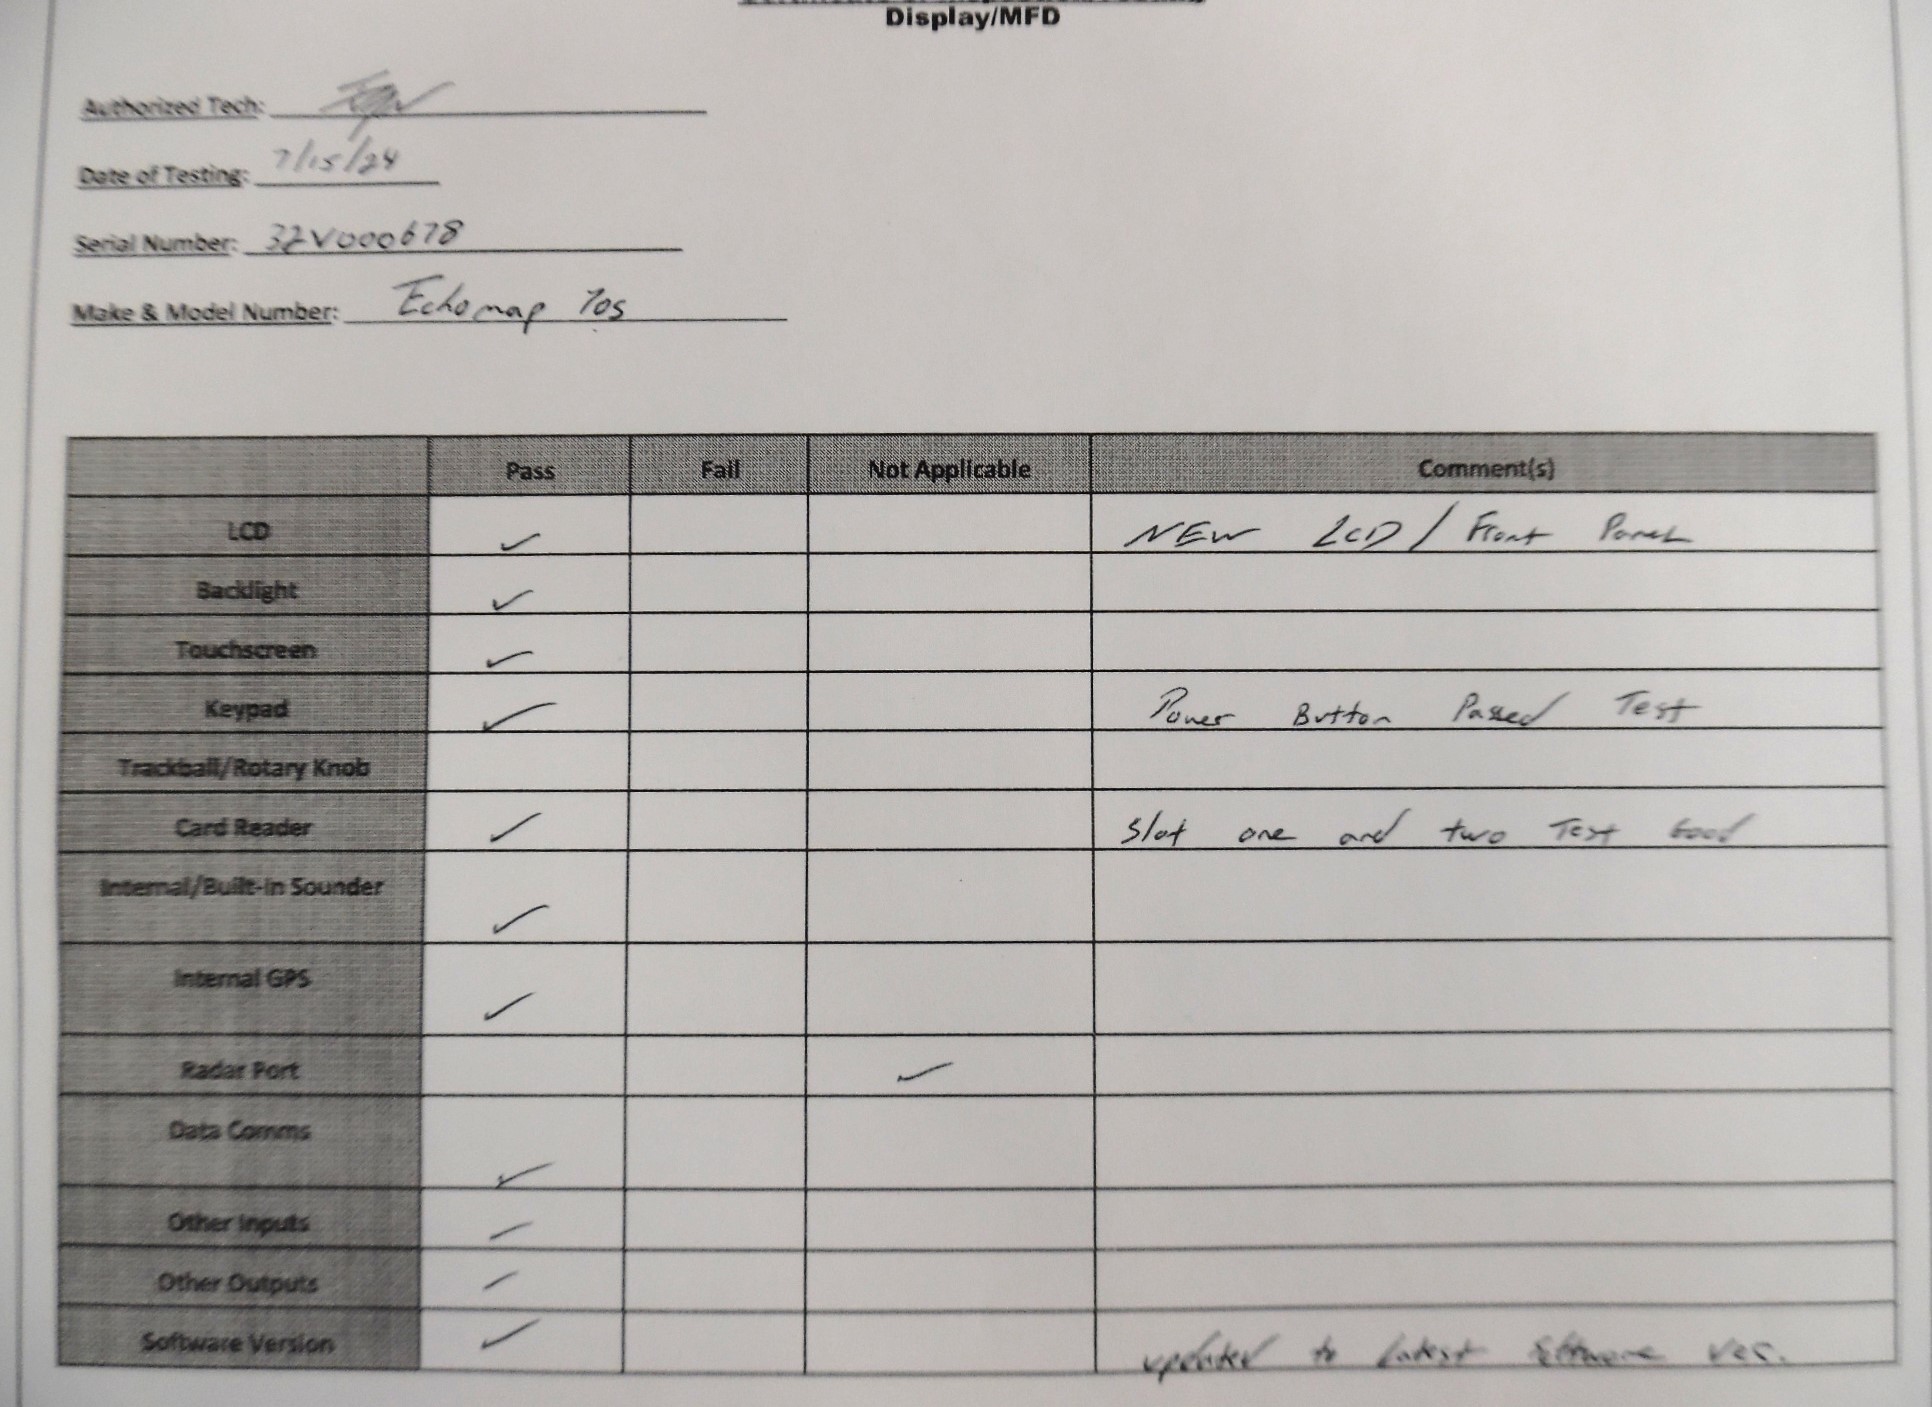 Display/MFD
Authorized Tech:
Date of Testing: 7/15/24
Serial Number: 32V000678
Make & Model Number: Echomap 70s
Pass Fail Not Applicable Comment(s)
LCD ✓ NEW LCD / Front Panel
Backlight ✓
Touchscreen ✓
Keypad ✓ Power Button Passed Test
Trackball/Rotary Knob
Card Reader ✓ Slot one and two Test Good
Internal/Built-in Sounder ✓
Internal GPS ✓
Radar Port ✓
Data Comms ✓
Other Inputs ✓
Other Outputs ✓
Software Version ✓ updated to latest software ver.